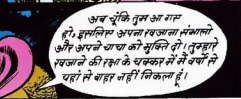 अब चूंकि तुम आ गए
हो, इसलिए अपना खजाना संभालो
और अपने चाचा को मुक्ति दो। तुम्हारे
खजाने की रक्षा के चक्कर में मैं वर्षों से
यहां से बाहर नहीं निकला हूं।